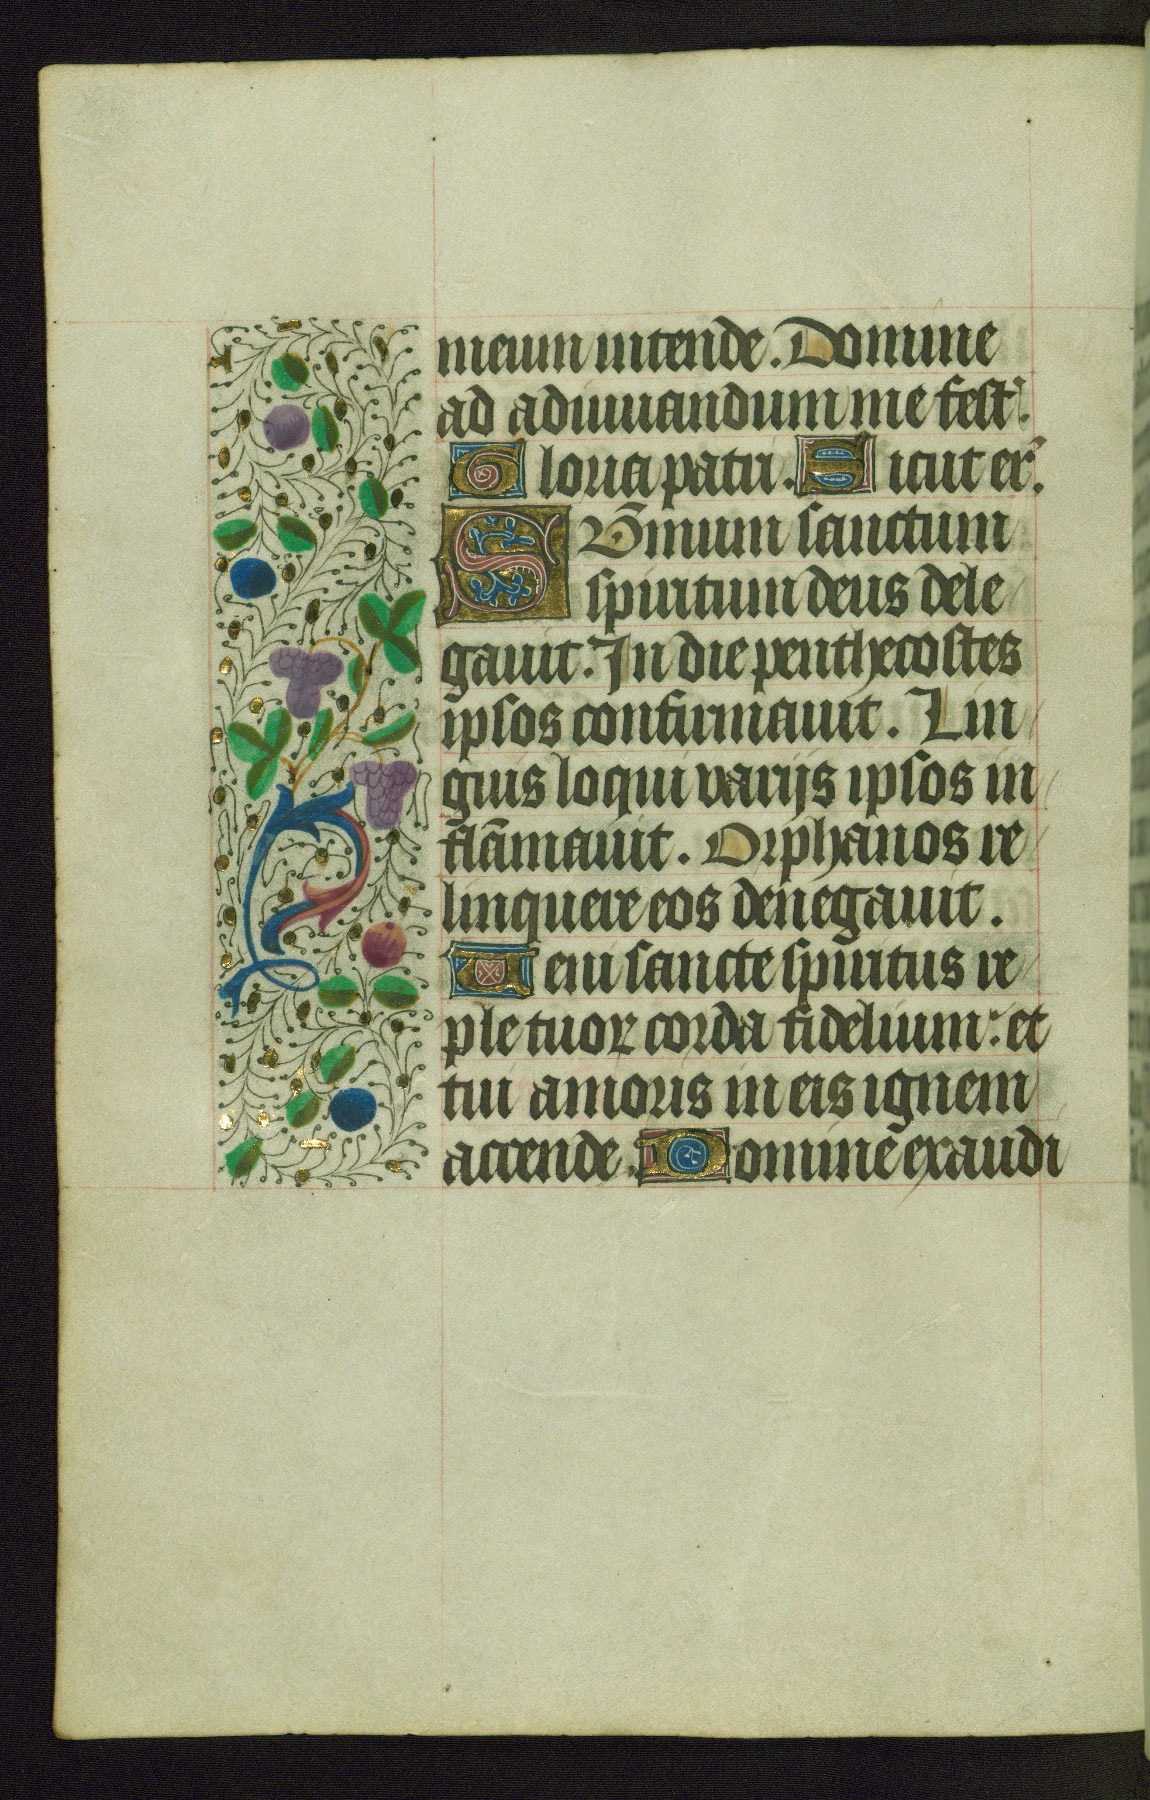 meum intende. Domine
ad adiuuandum me fest'.
Gloria patri. Sicut er'.
SUmum sanctum
spiritum deus dele
gauit. In die penthecostes
ipsos confirmauit. Lin
guis loqui varijs ipsos in
flāmauit. Orphanos re
linquere eos denegauit.
Veni sancte spiritus re
ple tuoꝝ corda fidelium: et
tui amoris in eis ignem
accende. Domine exaudi